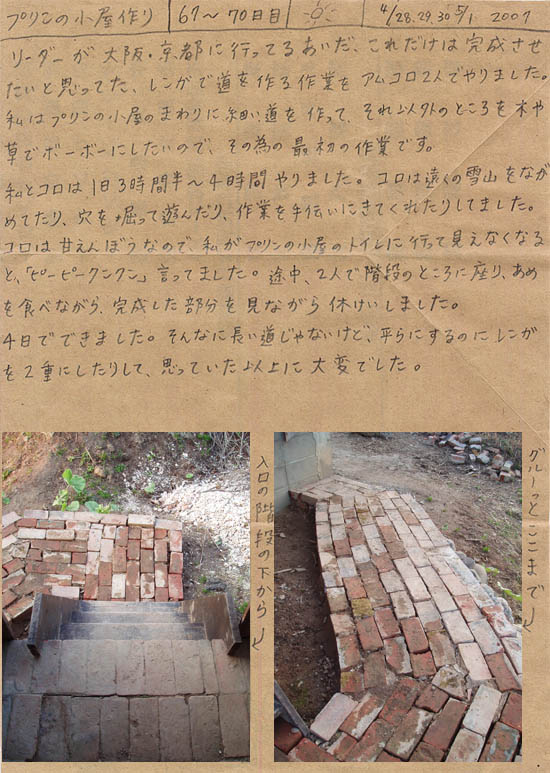 プリンの小屋作り 67〜70日目 4/28.29.30 5/1 2007
リーダーが大阪・京都に行ってるあいだ、これだけは完成させ
たいと思ってた、レンガで道を作る作業をアムコロ2人でやりました。
私はプリンの小屋のまわりに細い道を作って、それ以外のところを木や
草でボーボーにしたいので、その為の最初の作業です。
私とコロは1日3時間半〜4時間やりました。コロは遠くの雪山をなが
めてたり、穴を堀って遊んだり、作業を手伝いにきてくれたりしてました。
コロは甘えんぼうなので、私がプリンの小屋のトイレに行って見えなくなる
と、「ピーピークンクン」言ってました。途中、2人で階段のところに座り、あめ
を食べながら、完成した部分を見ながら休けいしました。
4日でできました。そんなに長い道じゃないけど、平らにするのにレンガ
を2重にしたりして、思っていた以上に大変でした。
入口の階段の下から
グルーっとここまで